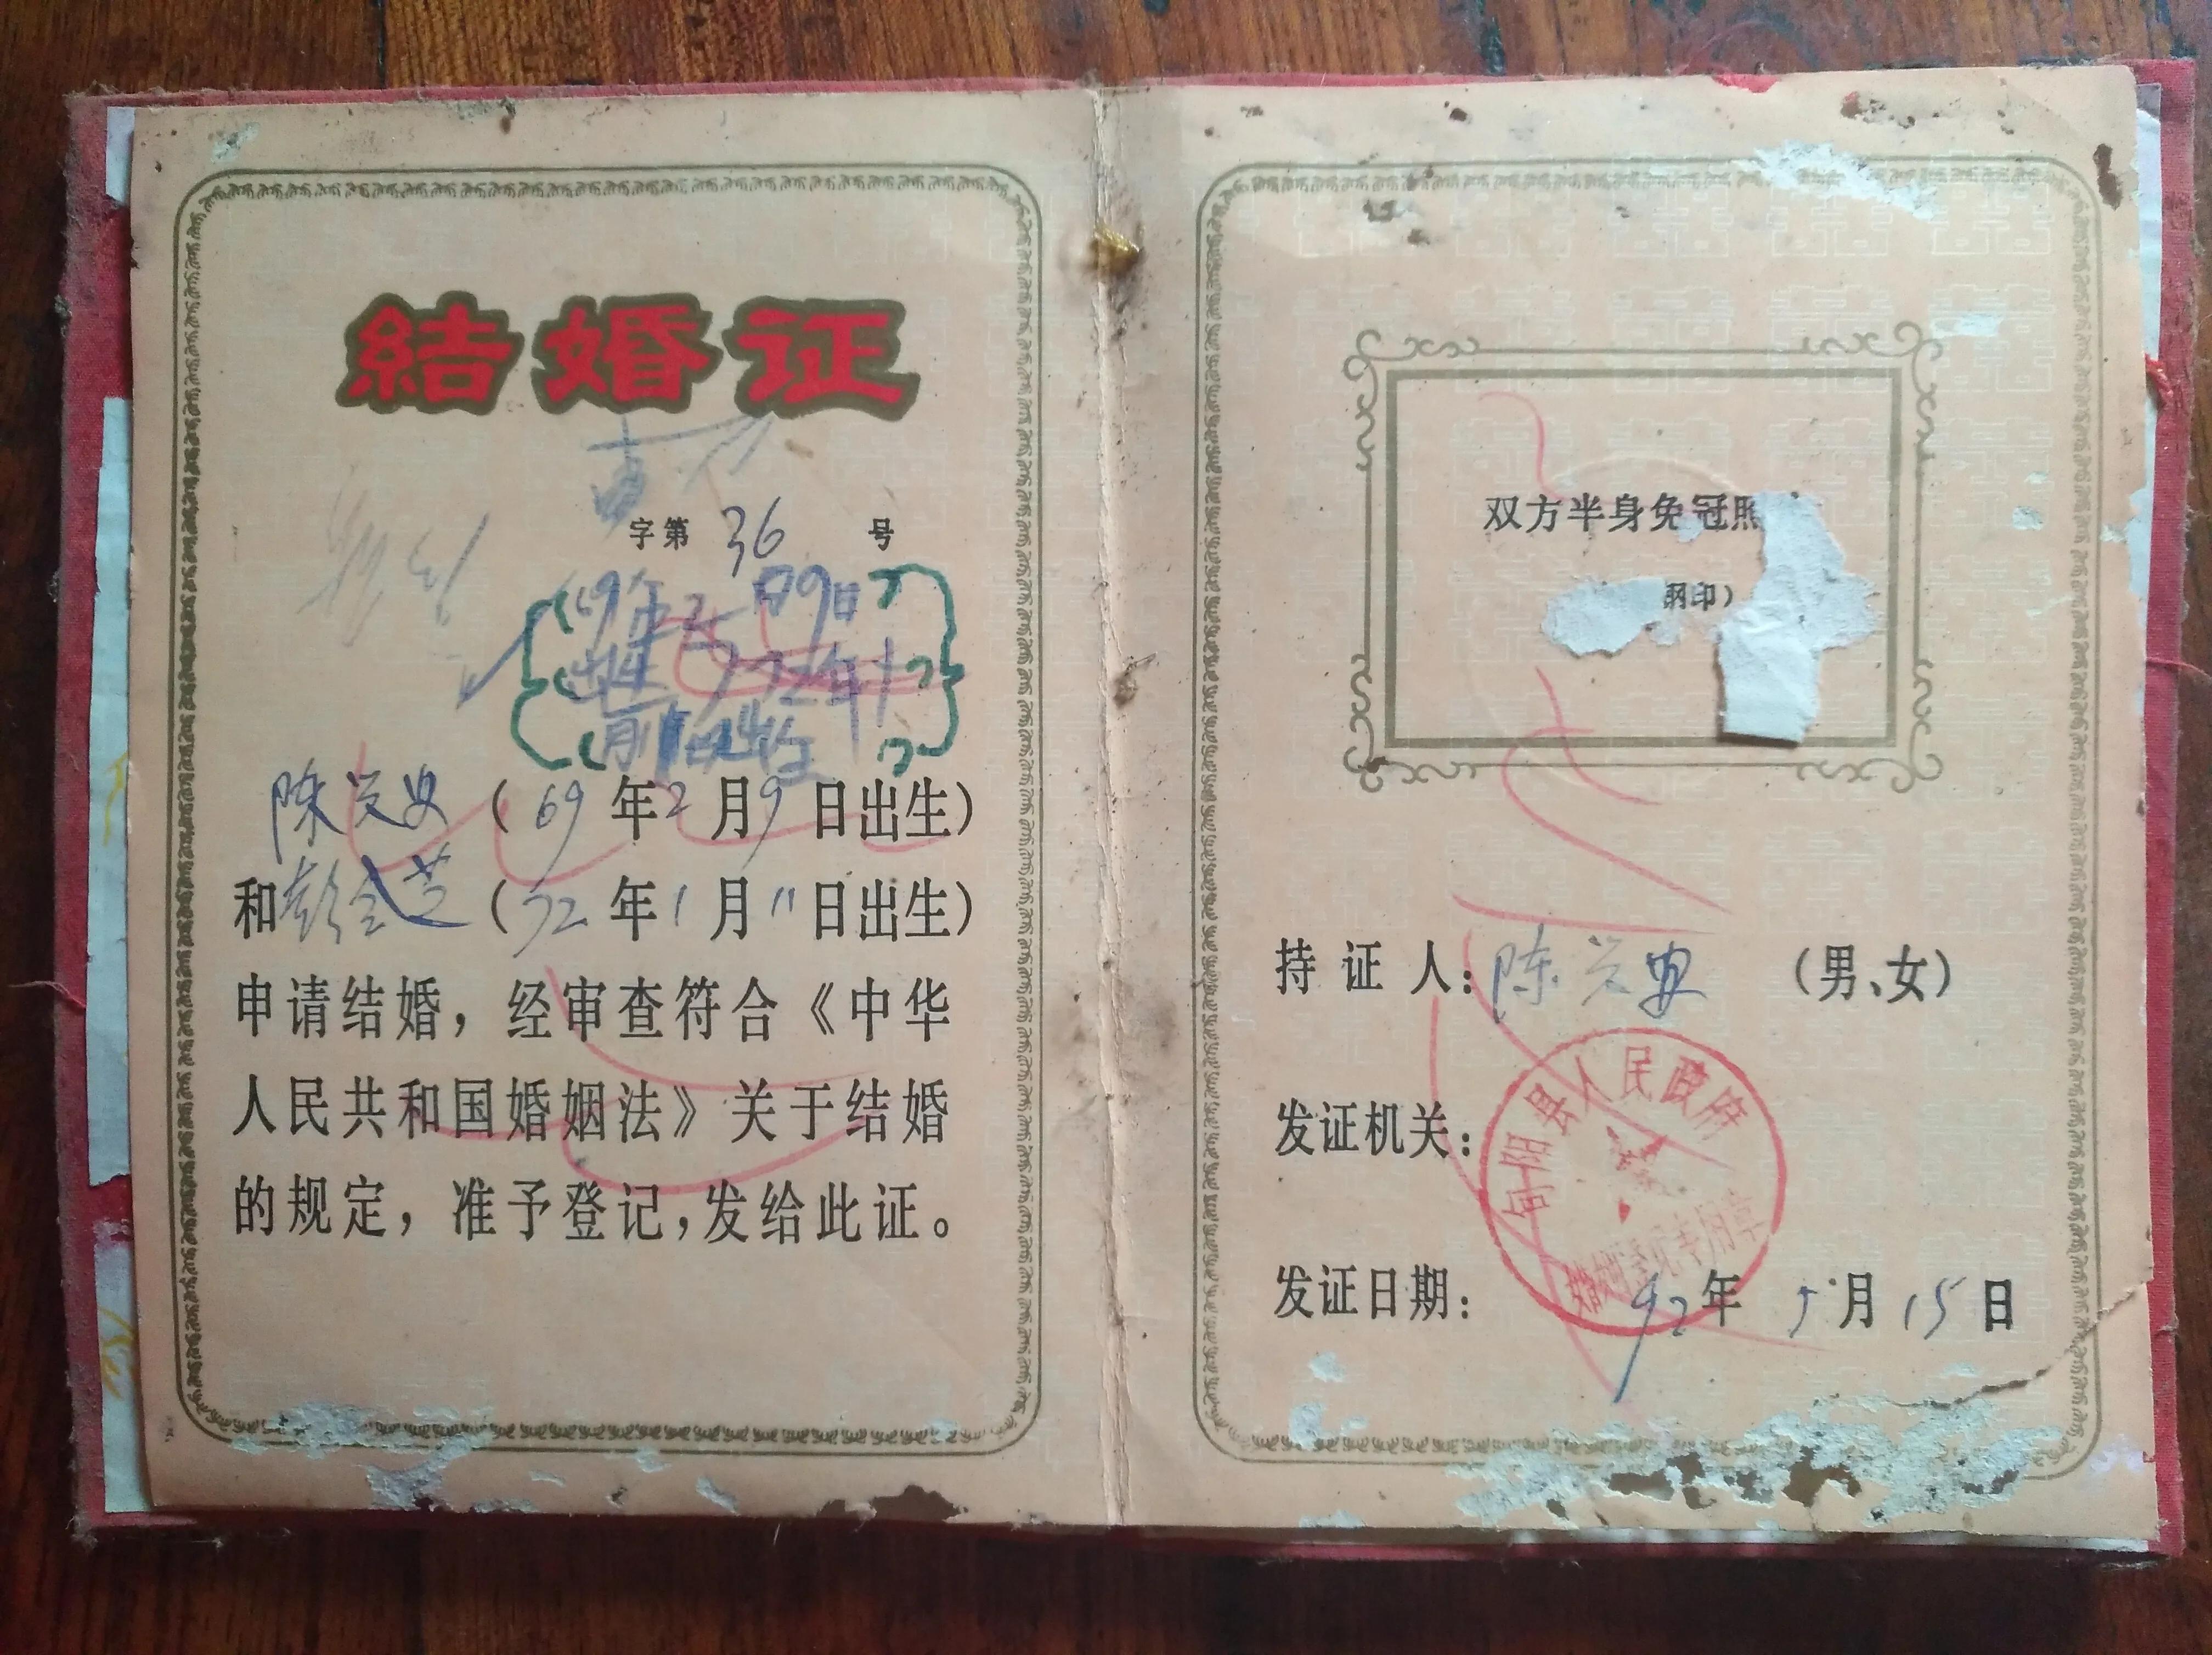 結婚证
字第 36 号
年2 月9日
出生 72年1
月11日出生
陈兴安（69年2月9日出生）
和彭金芝（72年1月11日出生）
申请结婚，经审查符合《中华
人民共和国婚姻法》关于结婚
的规定，准予登记，发给此证。
双方半身免冠照
钢印）
持证人：陈兴安（男、女）
发证机关：
旬阳县人民政府
婚姻登记专用章
发证日期：92年5月15日